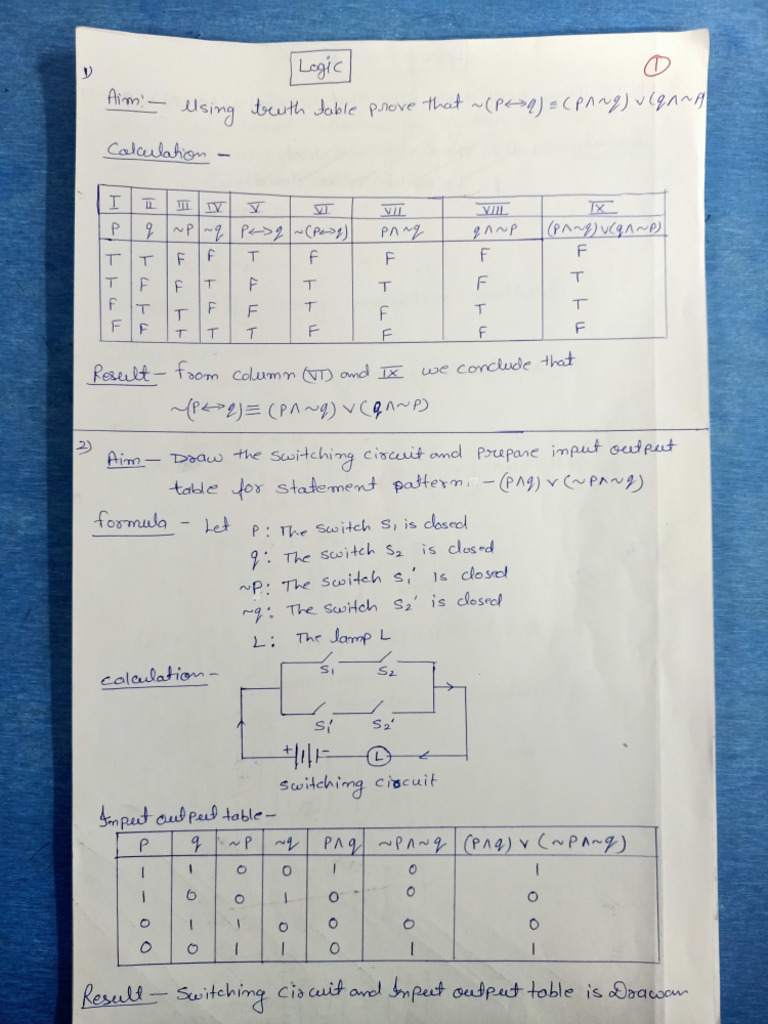 Logic
1
1)
Aim:- Using truth table prove that ~(P↔q) ≡ (P∧~q) ∨ (q∧~P)
Calculation -
I II III IV V VI VII VIII IX
P q ~P ~q P↔q ~(P↔q) P∧~q q∧~P (P∧~q)∨(q∧~P)
T T F F T F F F F
T F F T F T T F T
F T T F F T F T T
F F T T T F F F F
Result - from column (VI) and IX we conclude that
~(P↔q) ≡ (P∧~q) ∨ (q∧~P)
2)
Aim - Draw the switching circuit and prepare input output
table for statement pattern. - (P∧q) ∨ (~P∧~q)
formula - Let P: The switch S1 is closed
q: The switch S2 is closed
~P: The switch S1' is closed
~q: The switch S2' is closed
L: The lamp L
calculation -
S1 S2
S1' S2'
+ - L
switching circuit
Input output table -
P q ~P ~q P∧q ~P∧~q (P∧q) ∨ (~P∧~q)
1 1 0 0 1 0 1
1 0 0 1 0 0 0
0 1 1 0 0 0 0
0 0 1 1 0 1 1
Result - Switching circuit and Input output table is Drawan